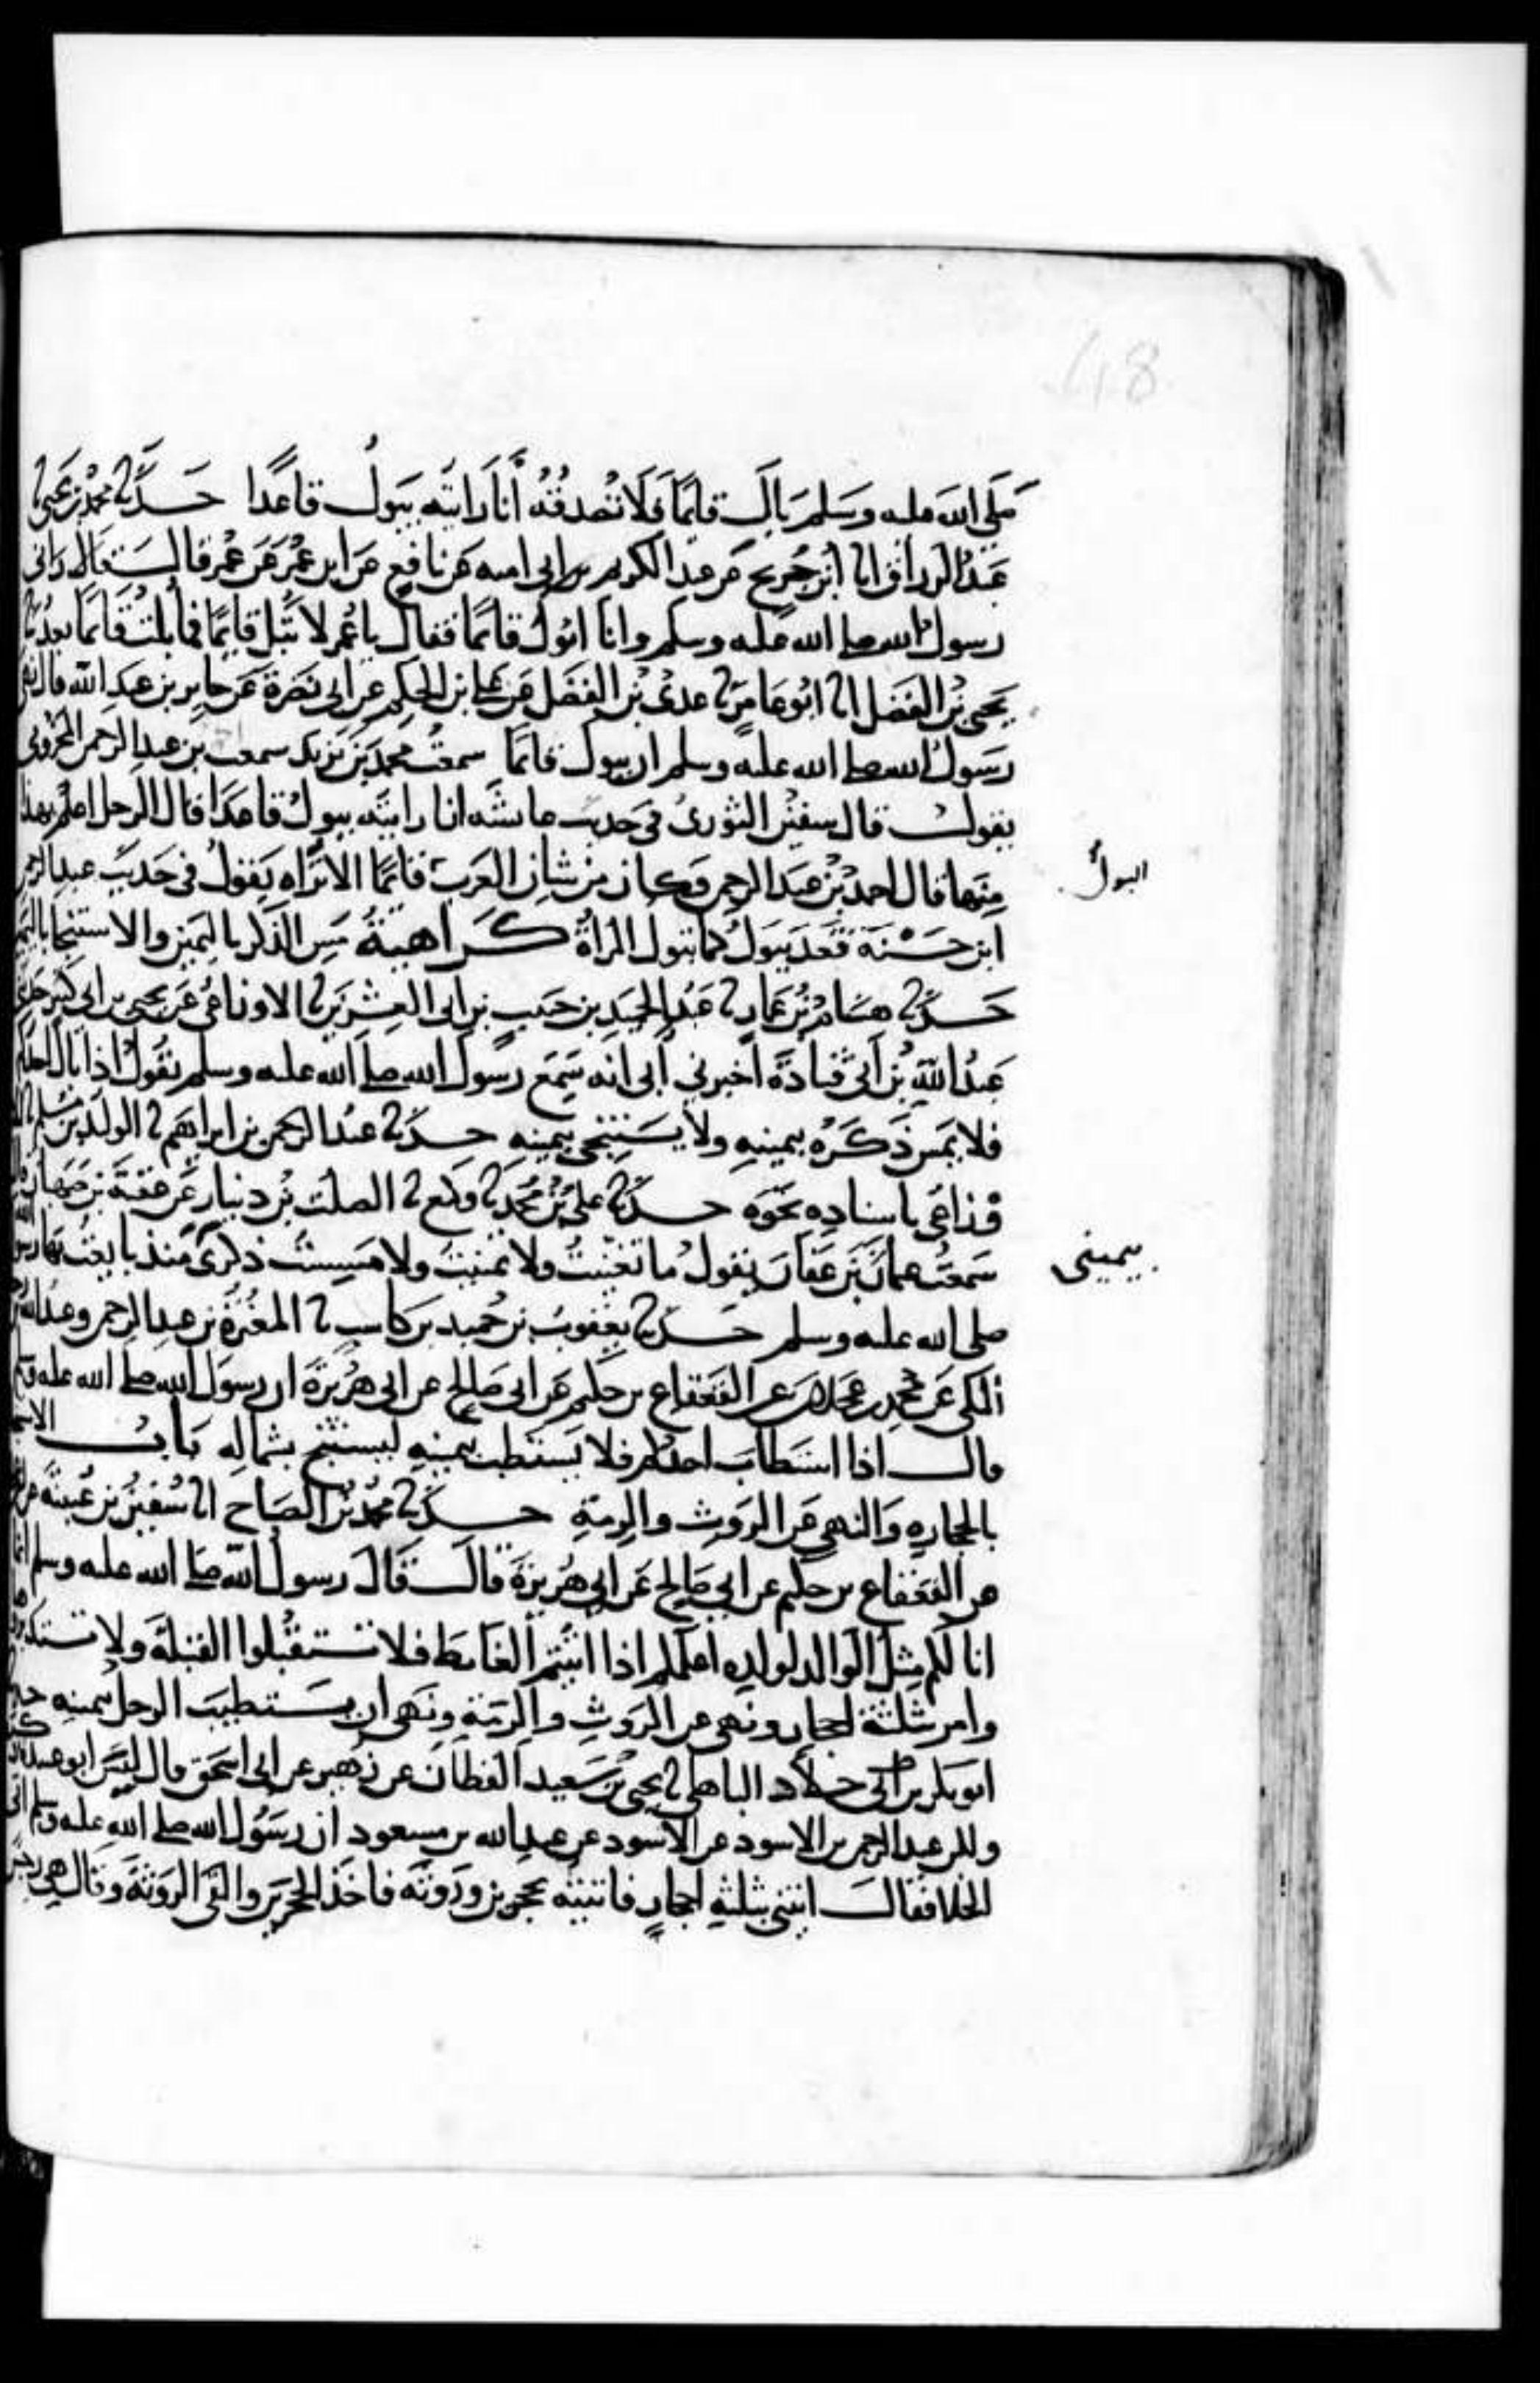 48
صلى الله عليه وسلم بال قايمًا فلا تصدقه أنا رايته يبول قاعدًا حدثنا محمد بن يحيى نا
عبد الرزاق انا ابن جريج عن عبد الكريم بن ابي اميه عن نافع عن ابن عمر عن عمر قال قال راني
رسول الله صلى الله عليه وسلم وانا ابول قائمًا فقال يا عمر لا تبل قايمًا فما بلت قائمًا بعد نا
يحيى بن الفضل انا ابو عامر نا عدي بن الفضل عن علي بن الحكم عن ابي نضرة عن جابر بن عبد الله قال نهى
رسول الله صلى الله عليه وسلم ان يبول قائمًا سمعت محمد بن يزيد سمعت بن عبد الرحمن المخزومي
يقول قال سفين الثوري في حديث عائشه انا رايته يبول قاعدا قال الرجل اعلم بهذا
منها قال احمد بن عبد الرحمن وكان من شان العرب قائمًا الا تراه يقول في حديث عبد الرحمن
البول
ابن حسنة قعد يبول كما تبول المرأة كراهية مس الذكر باليمين والاستنجا باليمين
حدثنا هشام بن عمار نا عبد الحميد بن حبيب بن ابي العشرين نا الاوزاعي عن يحيى بن ابي كثير حدثني
عبد الله بن أبي قتادة أخبرني أبي انه سمع رسول الله صلى الله عليه وسلم يقول اذا بال احدكم
فلا يمس ذكره بيمينه ولا يستنجي بيمينه حدثنا عبد الرحمن بن ابراهيم نا الوليد بن مسلم نا
وزاعي باسناده نحوه حدثنا علي بن محمد نا وكيع نا الصلت بن دينار عن عقبة بن صهبان
سمعت عثمان بن عفان يقول ما تغنيت ولا تمنيت ولا مسست ذكري منذ بايعت بها رسول
بيميني
صلى الله عليه وسلم حدثنا يعقوب بن حميد بن كاسب نا المغيرة بن عبد الرحمن وعبد الله
المكي عن محمد بن عجلان عن القعقاع بن حكيم عن ابي صالح عن ابي هريرة ان رسول الله صلى الله عليه وسلم
قال اذا استطاب احدكم فلا يستطب بيمينه ليستنج بشماله باب
بالحجاره والنهي عن الروث والرمة حدثنا محمد بن الصباح انا سفين بن عيينة
عن القعقاع بن حكيم عن ابي صالح عن ابي هريرة قال قال رسول الله صلى الله عليه وسلم انما
انا لكم مثل الوالد لولده اعلمكم اذا اتيتم الغائط فلا تستقبلوا القبلة ولا تستدبروها
وامر بثلثة احجار ونهى عن الروث والرمة ونهى ان يستطيب الرجل بيمينه
ابو بكر بن ابي خلاد الباهلي نا يحيى بن سعيد القطان عن زهير عن ابي اسحق قال ليس ابو عبيدة ذكره
ولكن عبد الرحمن بن الاسود عن الاسود عن عبد الله بن مسعود ان رسول الله صلى الله عليه وسلم اتى
الخلا فقال ائتني بثلثه احجار فاتيته بحجرين وروثه فاخذ الحجرين والقى الروثة وقال هي رجس